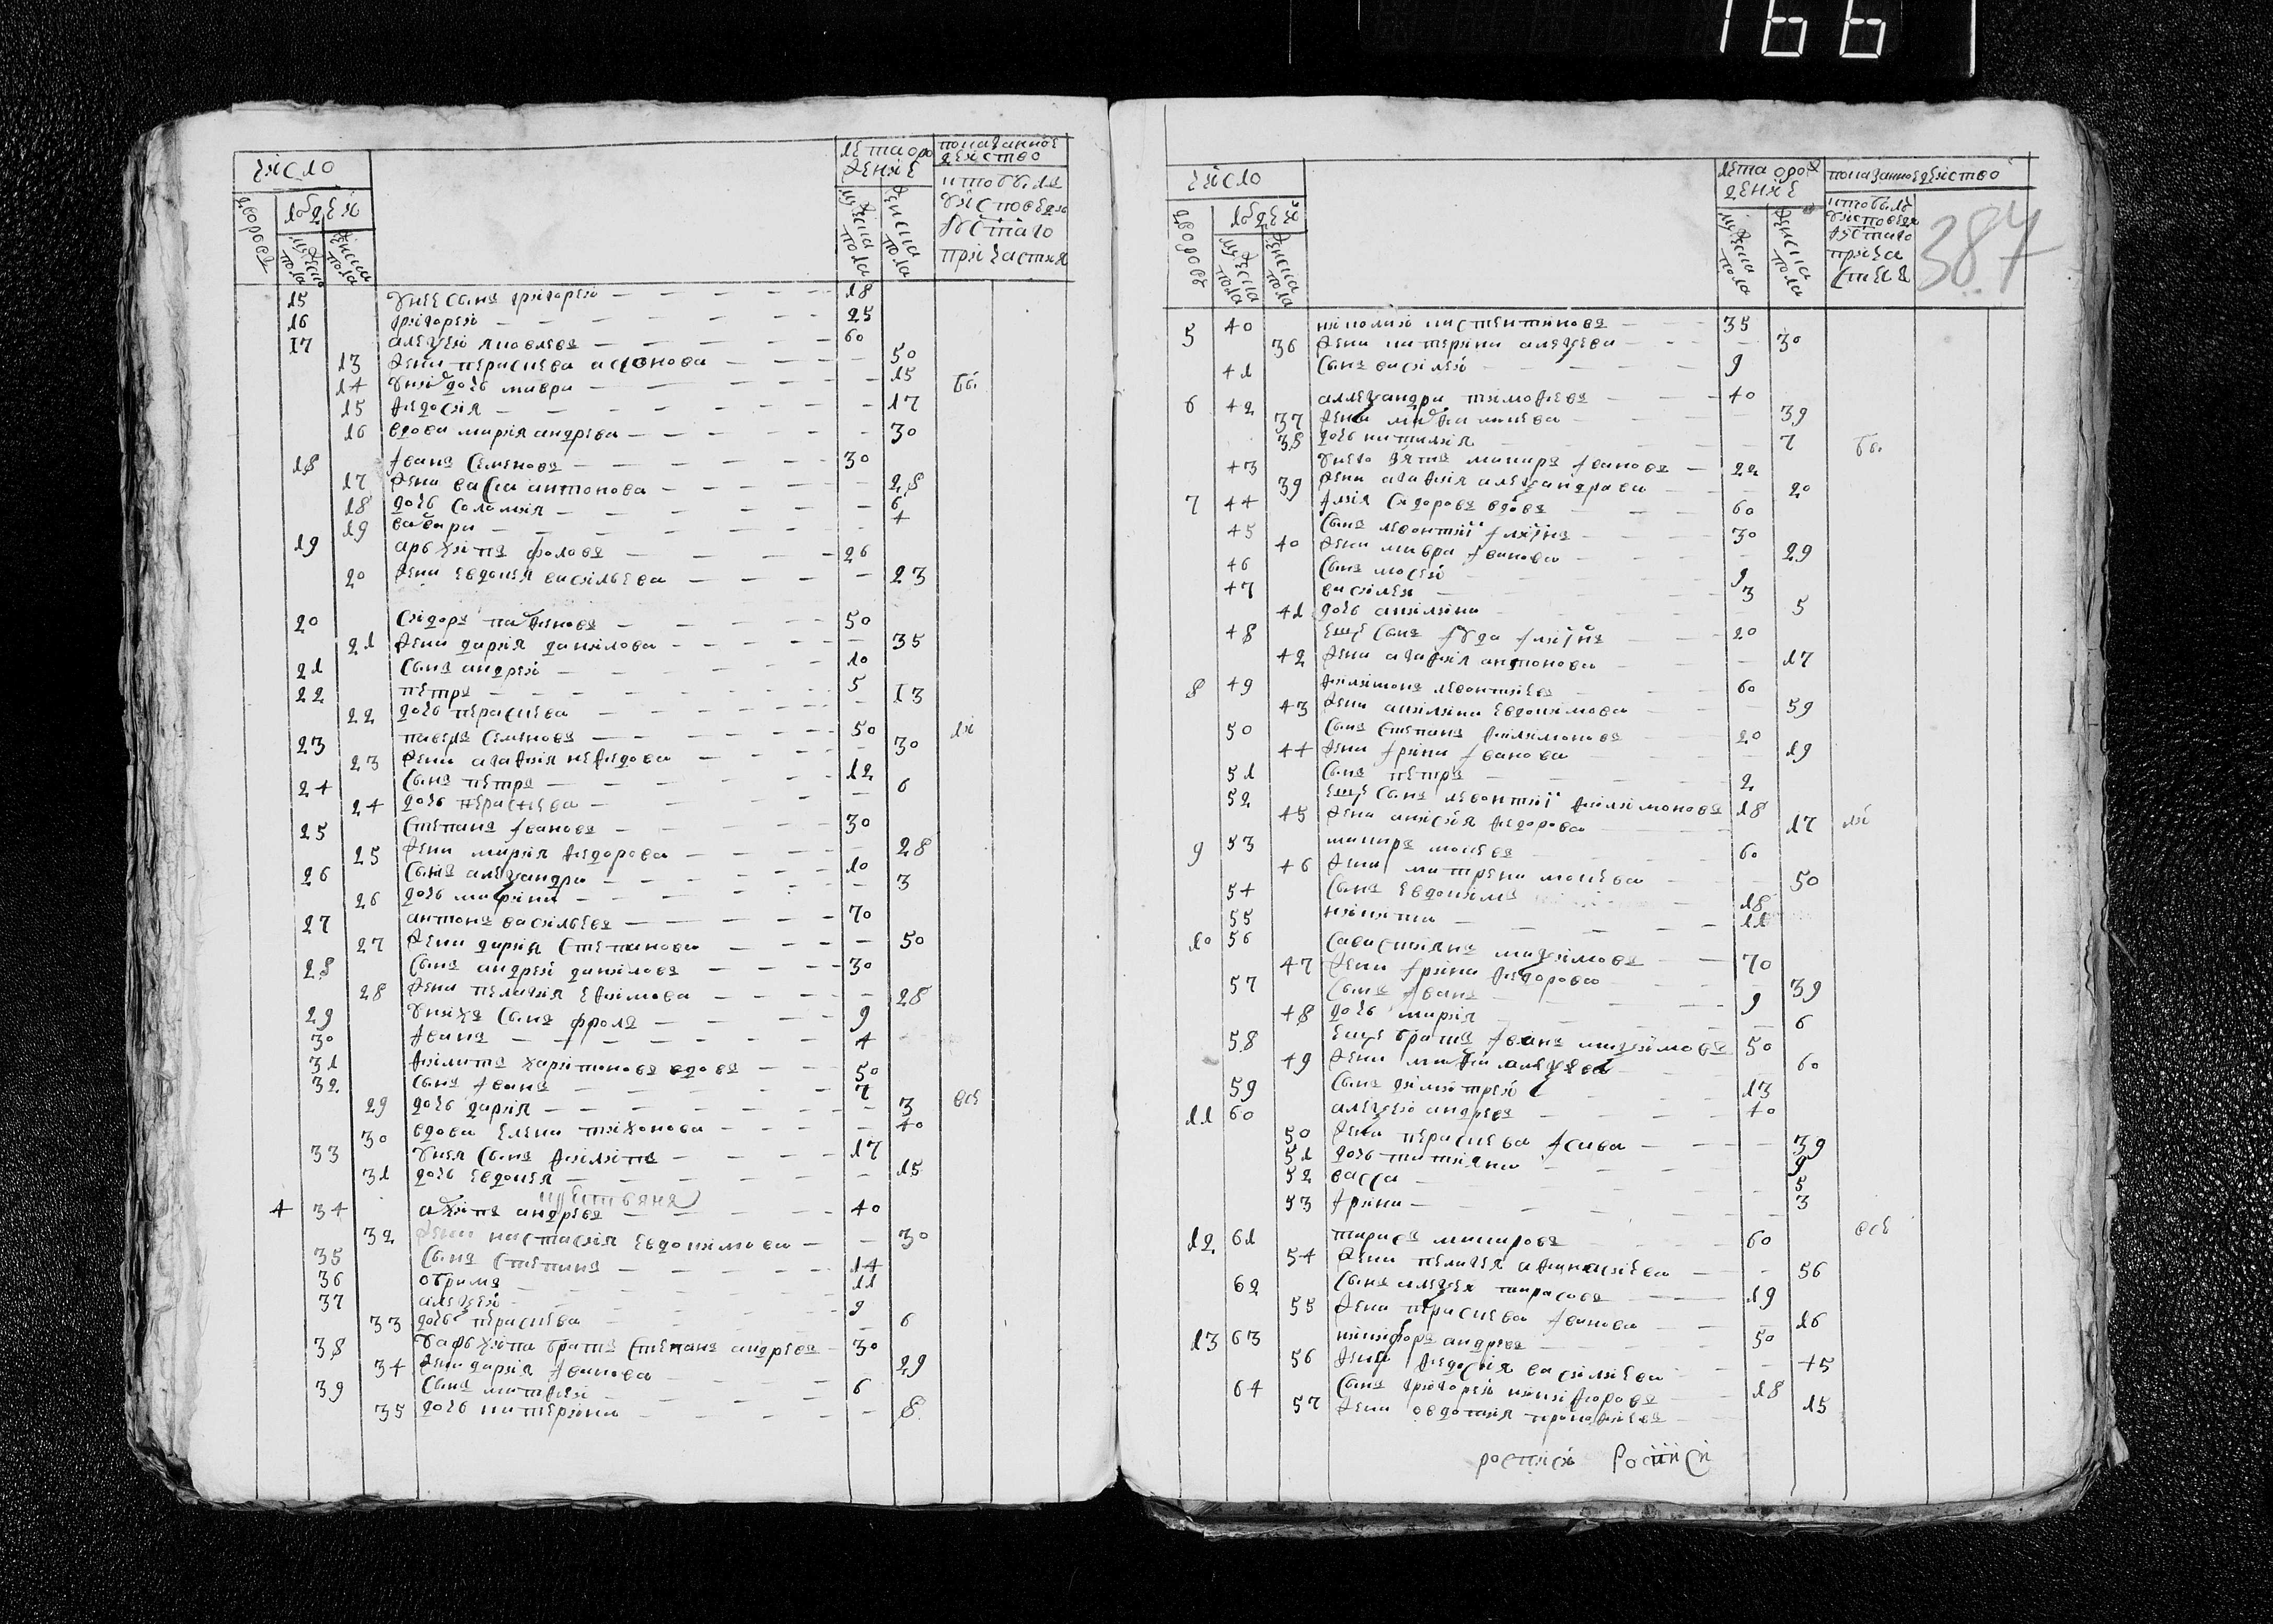 166
число
дворовъ
людеи
мужеска пола
женска пола
лета оро
жение
мужеска пола
женска пола
показанное
деиство
кто были
у исповеди
и стаго
причастия
15 у нее сынъ григореи 18
16 григореи 25
17 алеѯеи яковлевъ 60
13 жена пераскева асонова 50
14 у них дочь мавра 15 бы
15 федосия 17
16 вдова мария андрева 30
18 иванъ семеновъ 30
17 жена васса антонова 28
18 дочь соломия 6
19 вавара 4
19 архипъ фоловъ 26
20 жена евдокея васильева 23
20 сидоръ пафеновъ 50
21 жена дария данилова 35
21 сынъ андреи 10
22 петръ 5
22 дочь пераскева 13
23 павелъ семеновъ 50 ли
23 жена агафия нефедова 30
24 сынъ петръ 12
24 дочь пераскева 6
25 степанъ ивановъ 30
25 жена мария федорова 28
26 сынъ алеѯандра 10
26 дочь марина 3
27 антонъ васильевъ 70
27 жена дария степанова 50
28 сынъ андреи даниловъ 30
28 жена пелагия ефимова 28
29 у нихъ сынъ фролъ 9
30 иванъ 4
31 филипъ харитоновъ вдовъ 50
32 сынъ иванъ 7
29 дочь дария 3 все
30 вдова елена тихонова 40
33 у нея сынъ филипъ 17
31 дочь евдокея 15
4 34 ахипъ андревъ 40
32 жена настасия евдокимова 30
35 сынъ степанъ 14
36 обрамъ 11
37 алеѯеи 9
33 дочь пераскева 6
38 у архипа братъ степанъ андревъ 30
34 жена дария иванова 29
39 сынъ матфеи 6
35 дочь катерина 8
число
дворовъ
людеи
мужеска пола
женска пола
лета орож
дение
мужеска пола
женска пола
показанное деиство
кто были
у исповеди
и стаго
прича
стиеа
387
5 40 николаи кастентиновъ 35
36 жена катерина алеѯева 30
41 сынъ василеи 9
6 42 аллеѯандра тимофевъ 40
37 жена мафа макева 39
38 дочь наталия 7 бы
43 у него зять макаръ ивановъ 22
39 жена агафия алеѯандрава 20
7 44 илия сидоровъ вдовъ 60
45 сынъ левонтии илиинъ 30
40 жена мавра иванова 29
46 сынъ мосеи 9
47 василеи 3
41 дочь акилина 5
48 еще сынъ иуда илиинъ 20
42 жена агафия антонова 17
8 49 филимонъ левонтиевъ 60
43 жена акилина евдокимова 59
50 сынъ степанъ филимоновъ 20
44 жена ирина иванова 19
51 сынъ петръ 2
52 еще сынъ левонтии филимоновъ 18
45 жена анисия федорова 17 ли
9 53 макаръ мокевъ 60
46 жена матрена мокева 50
54 сынъ евдокимъ 18
55 никита 11
10 56 савастиянъ маѯимовъ 70
47 жена ирина федорова 39
57 сынъ иванъ 9
48 дочь мария 6
58 еще братъ иванъ маѯимовъ 50
49 жена мафа алеѯева 60
59 сынъ димитреи 13
11 60 алеѯеи андревъ 40
50 жена пераскева исава 39
51 дочь татияна 9
52 васса 5
53 ирина 3
12 61 тарасъ макаровъ 60 все
54 жена пелагея афанасиева 56
62 сынъ алеѯеи тарасовъ 19
55 жена пераскева иванова 16
13 63 никифоръ андревъ 50
56 жена федосия василиева 45
64 сынъ григореи никифоровъ 18
57 жена овдотия прокофиева 15
росписи Росписи